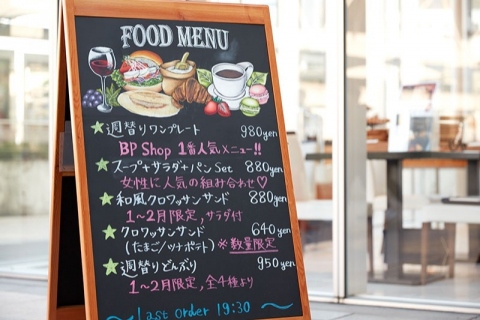 FOOD MENU
週替りワンプレート 980yen
BP Shop 1番人気メニュー!!
スープ+サラダ+パンSet 880yen
女性に人気の組み合わせ♡
和風クロワッサンサンド 880yen
1〜2月限定,サラダ付
クロワッサンサンド 640yen
(たまご/ツナポテト) ※数量限定
週替りどんぶり 950yen
1〜2月限定,全4種より
〜Last order 19:30〜